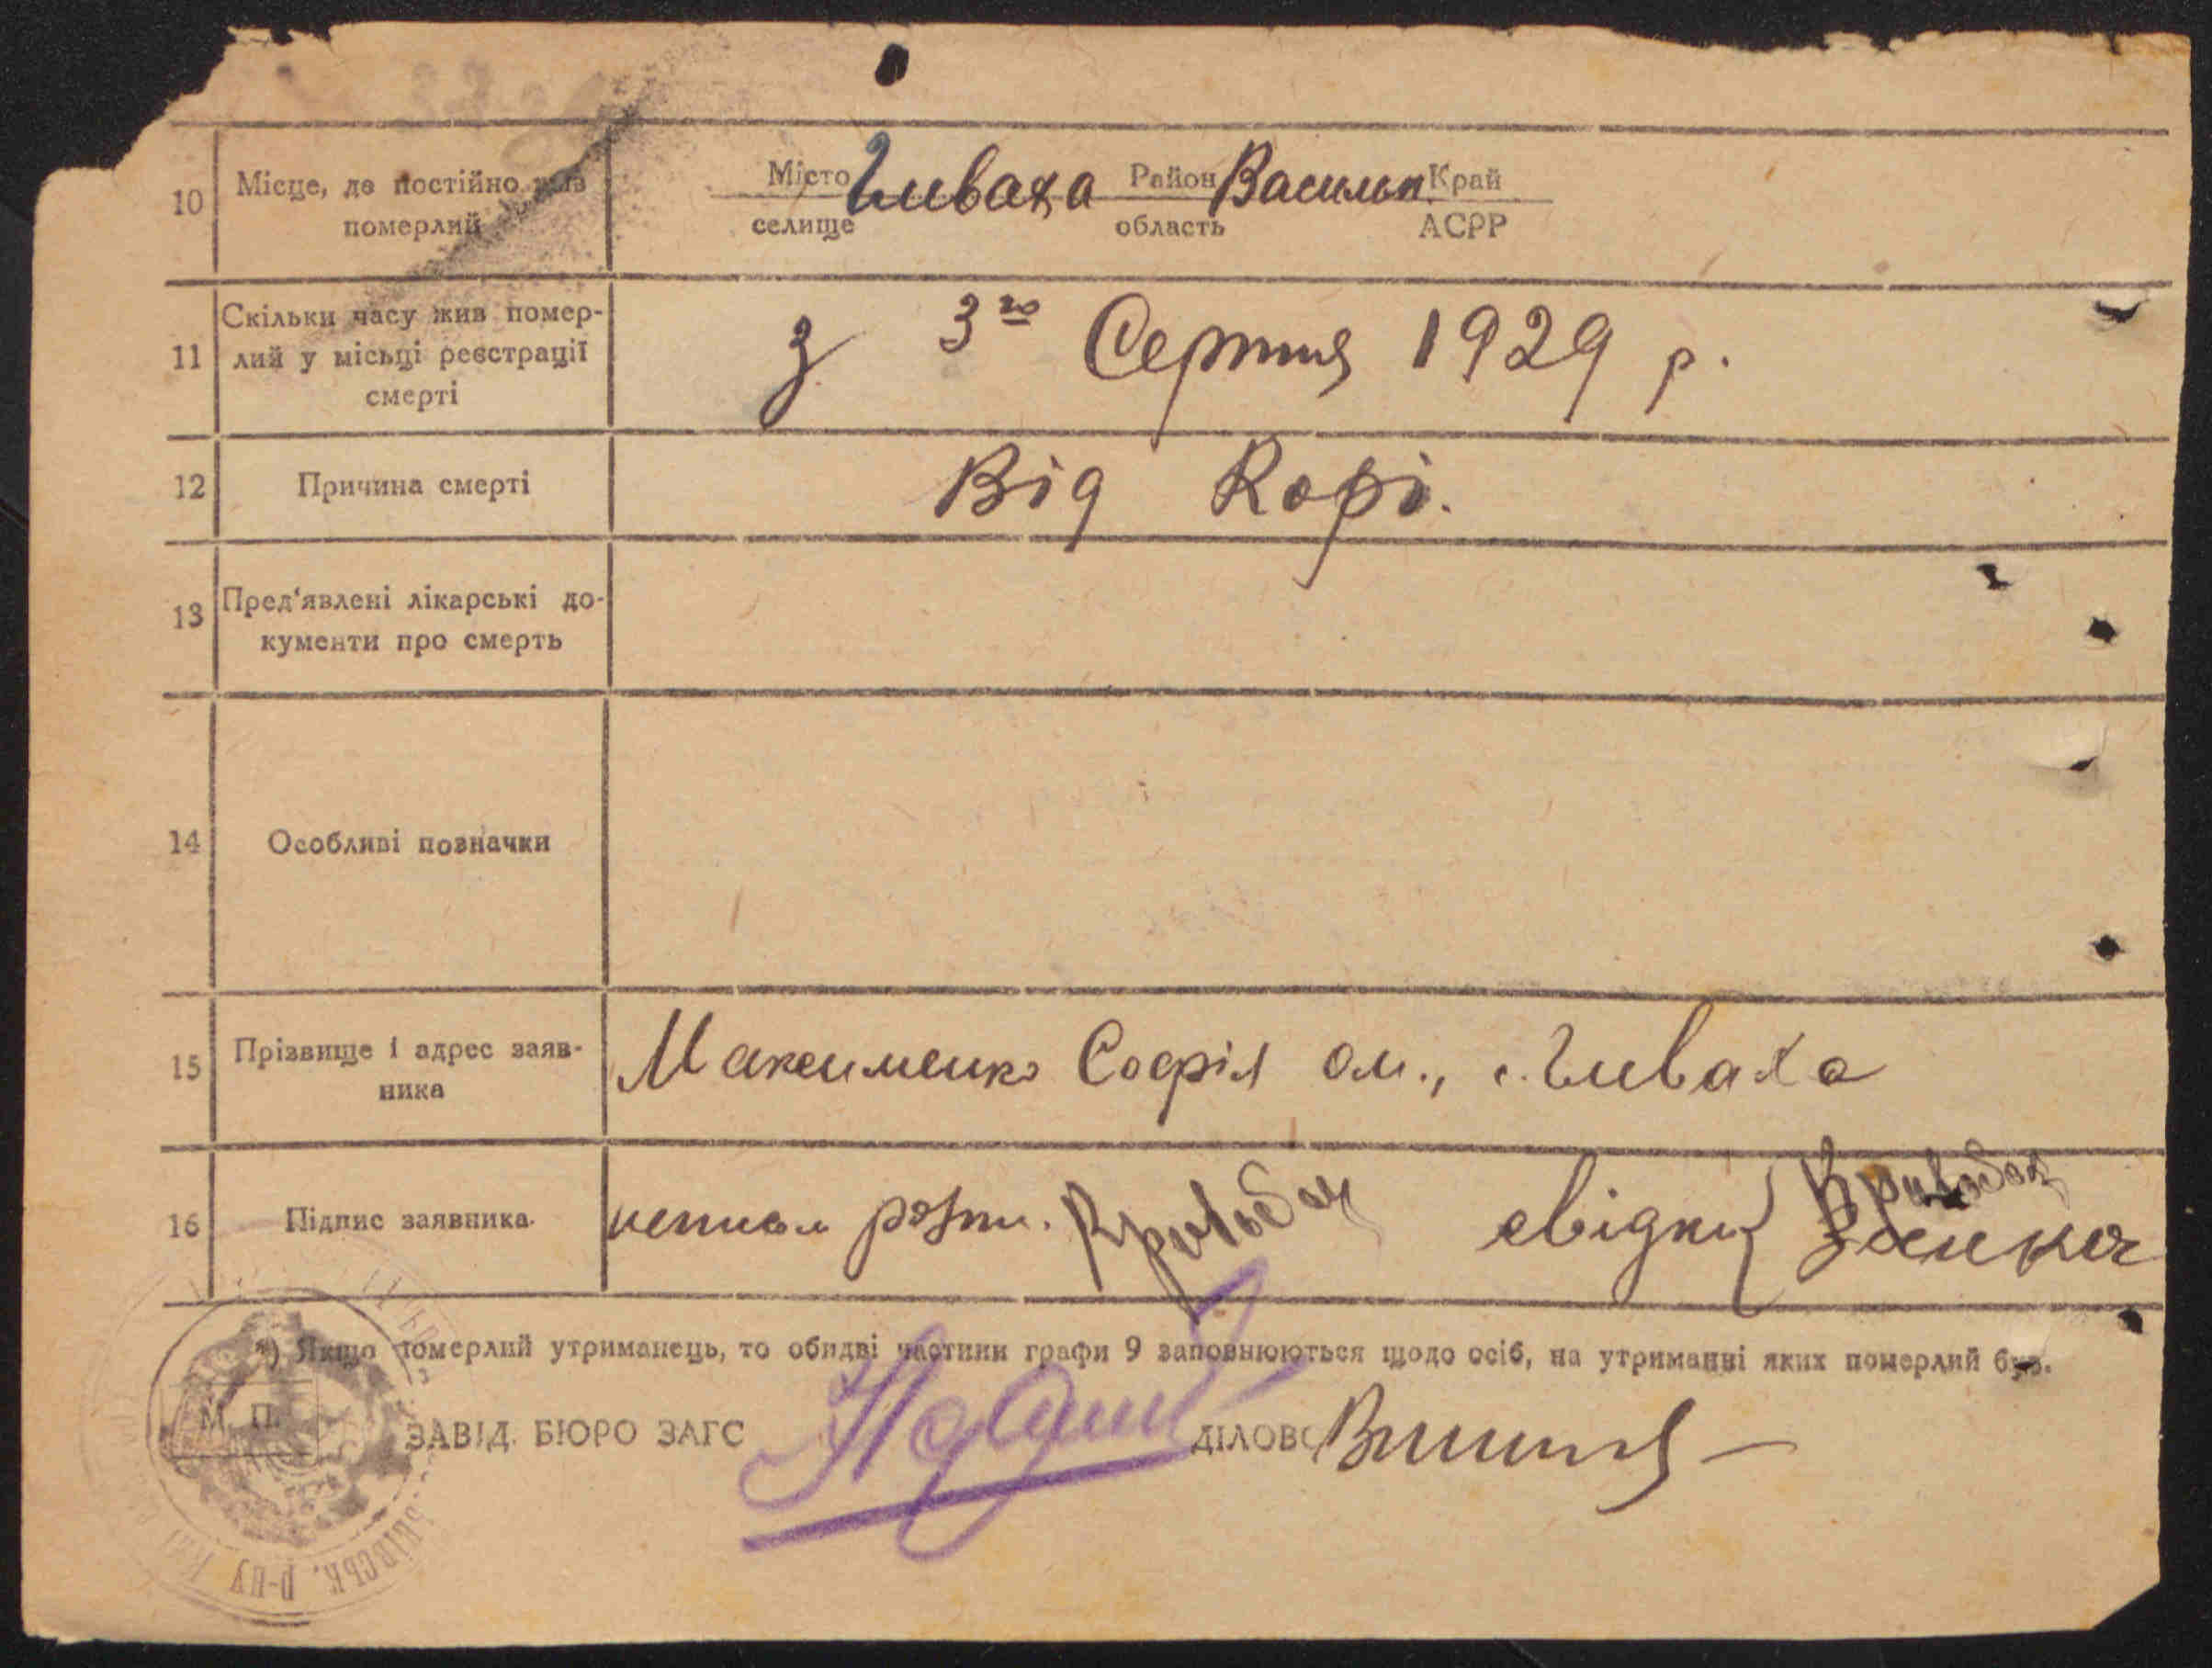 10 Місце, де постійно жив померлий
Місто Гливаха Район Васильк. Край
селище область АСРР
11 Скільки часу жив помер-
лий у місьці реєстрації
смерті
з 3го Серпня 1929 р.
12 Причина смерті
Від Корі.
13 Пред'явлені лікарські до-
кументи про смерть
14 Особливі позначки
15 Прізвище і адрес заяв-
ника
Максименко Софія Ом., с. Гливаха
16 Підпис заявника
непись розп. Кривобок свідки Кривобок
Заика
*) Якщо померлий утриманець, то обидві частини графи 9 заповнюються щодо осіб, на утриманні яких померлий був.
М. П.
ЗАВІД. БЮРО ЗАГС ДІЛОВ
Р-НУ